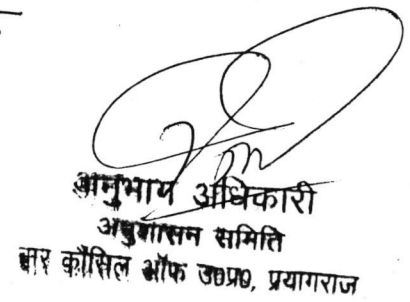 अनुभाग अधिकारी
अनुशासन समिति
बार कौंसिल ऑफ उ०प्र०, प्रयागराज